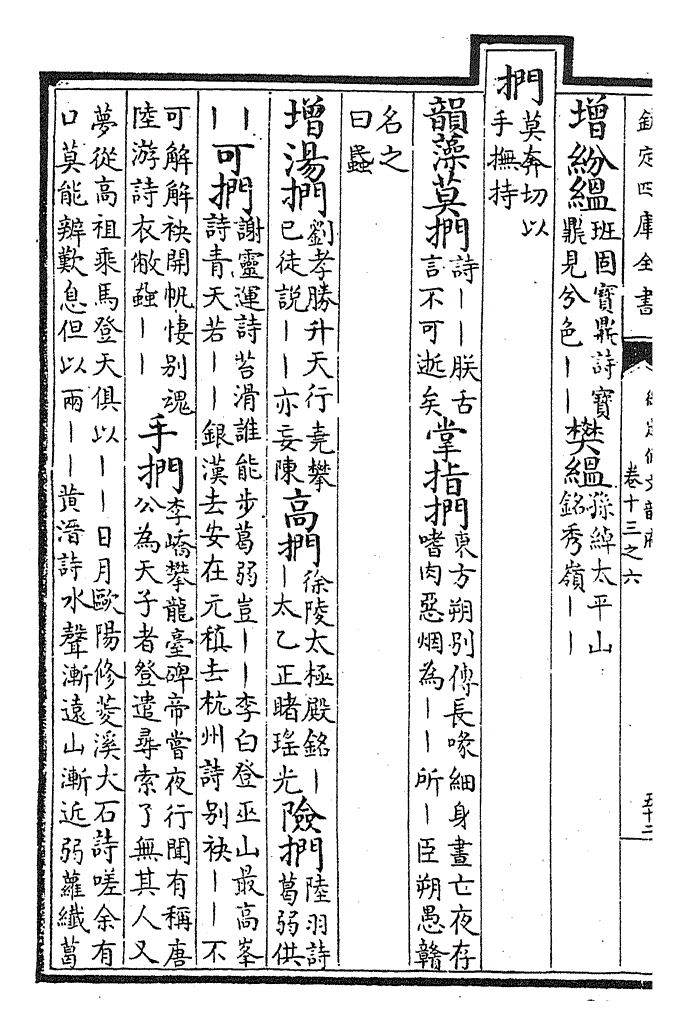 欽定四庫全書
卷十三之六
五十二
增紛縕班固寶鼎詩寶鼎見兮色丨丨樊縕孫綽太平山銘秀嶺丨丨
捫莫奔切以手撫持
韻藻莫捫詩丨丨朕舌言不可逝矣掌指捫東方朔别傳長喙細身晝亡夜存嗜肉惡烟為丨丨所丨臣朔愚戇
名之曰蝨
增湯捫劉孝勝升天行堯攀已徒説丨丨亦妄陳高捫徐陵太極殿銘丨丨太乙正睹瑤光險捫陸羽詩葛弱供
丨丨可捫謝靈運詩苔滑誰能步葛弱豈丨丨李白登巫山最高峯詩青天若丨丨銀漢去安在元稹去杭州詩别袂丨丨不
可解解袂開帆悽别魂陸游詩衣敝蝨丨丨手捫李嶠攀龍臺碑帝嘗夜行聞有稱唐公為天子者登遣尋索了無其人又
夢從高祖乘馬登天俱以丨丨日月歐陽修菱溪大石詩嗟余有口莫能辨歎息但以兩丨丨黄溍詩水聲漸遠山漸近弱蘿纖葛